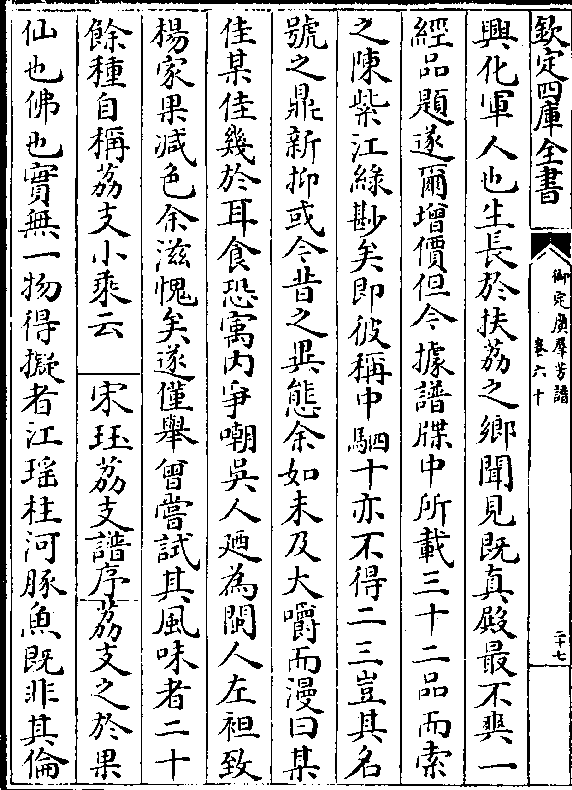 欽定四庫全書
御定廣羣芳譜
卷六十
二十七
興化軍人也生長於扶荔之鄉聞見既真殿最不爽一
經品題遂爾增價但今據譜牒中所載三十二品而索
之陳紫江綠尠矣即彼稱中駟十亦不得二三豈其名
號之鼎新抑或今昔之異態余如未及大嚼而漫曰某
佳某佳幾於耳食恐寓内爭嘲吳人廼為閩人左袒致
楊家果減色余滋愧矣遂僅舉曾嘗試其風味者二十
餘種自稱荔支小乘云　宋珏荔支譜序荔支之於果
仙也佛也實無一物得擬者江瑶柱河豚魚既非其倫